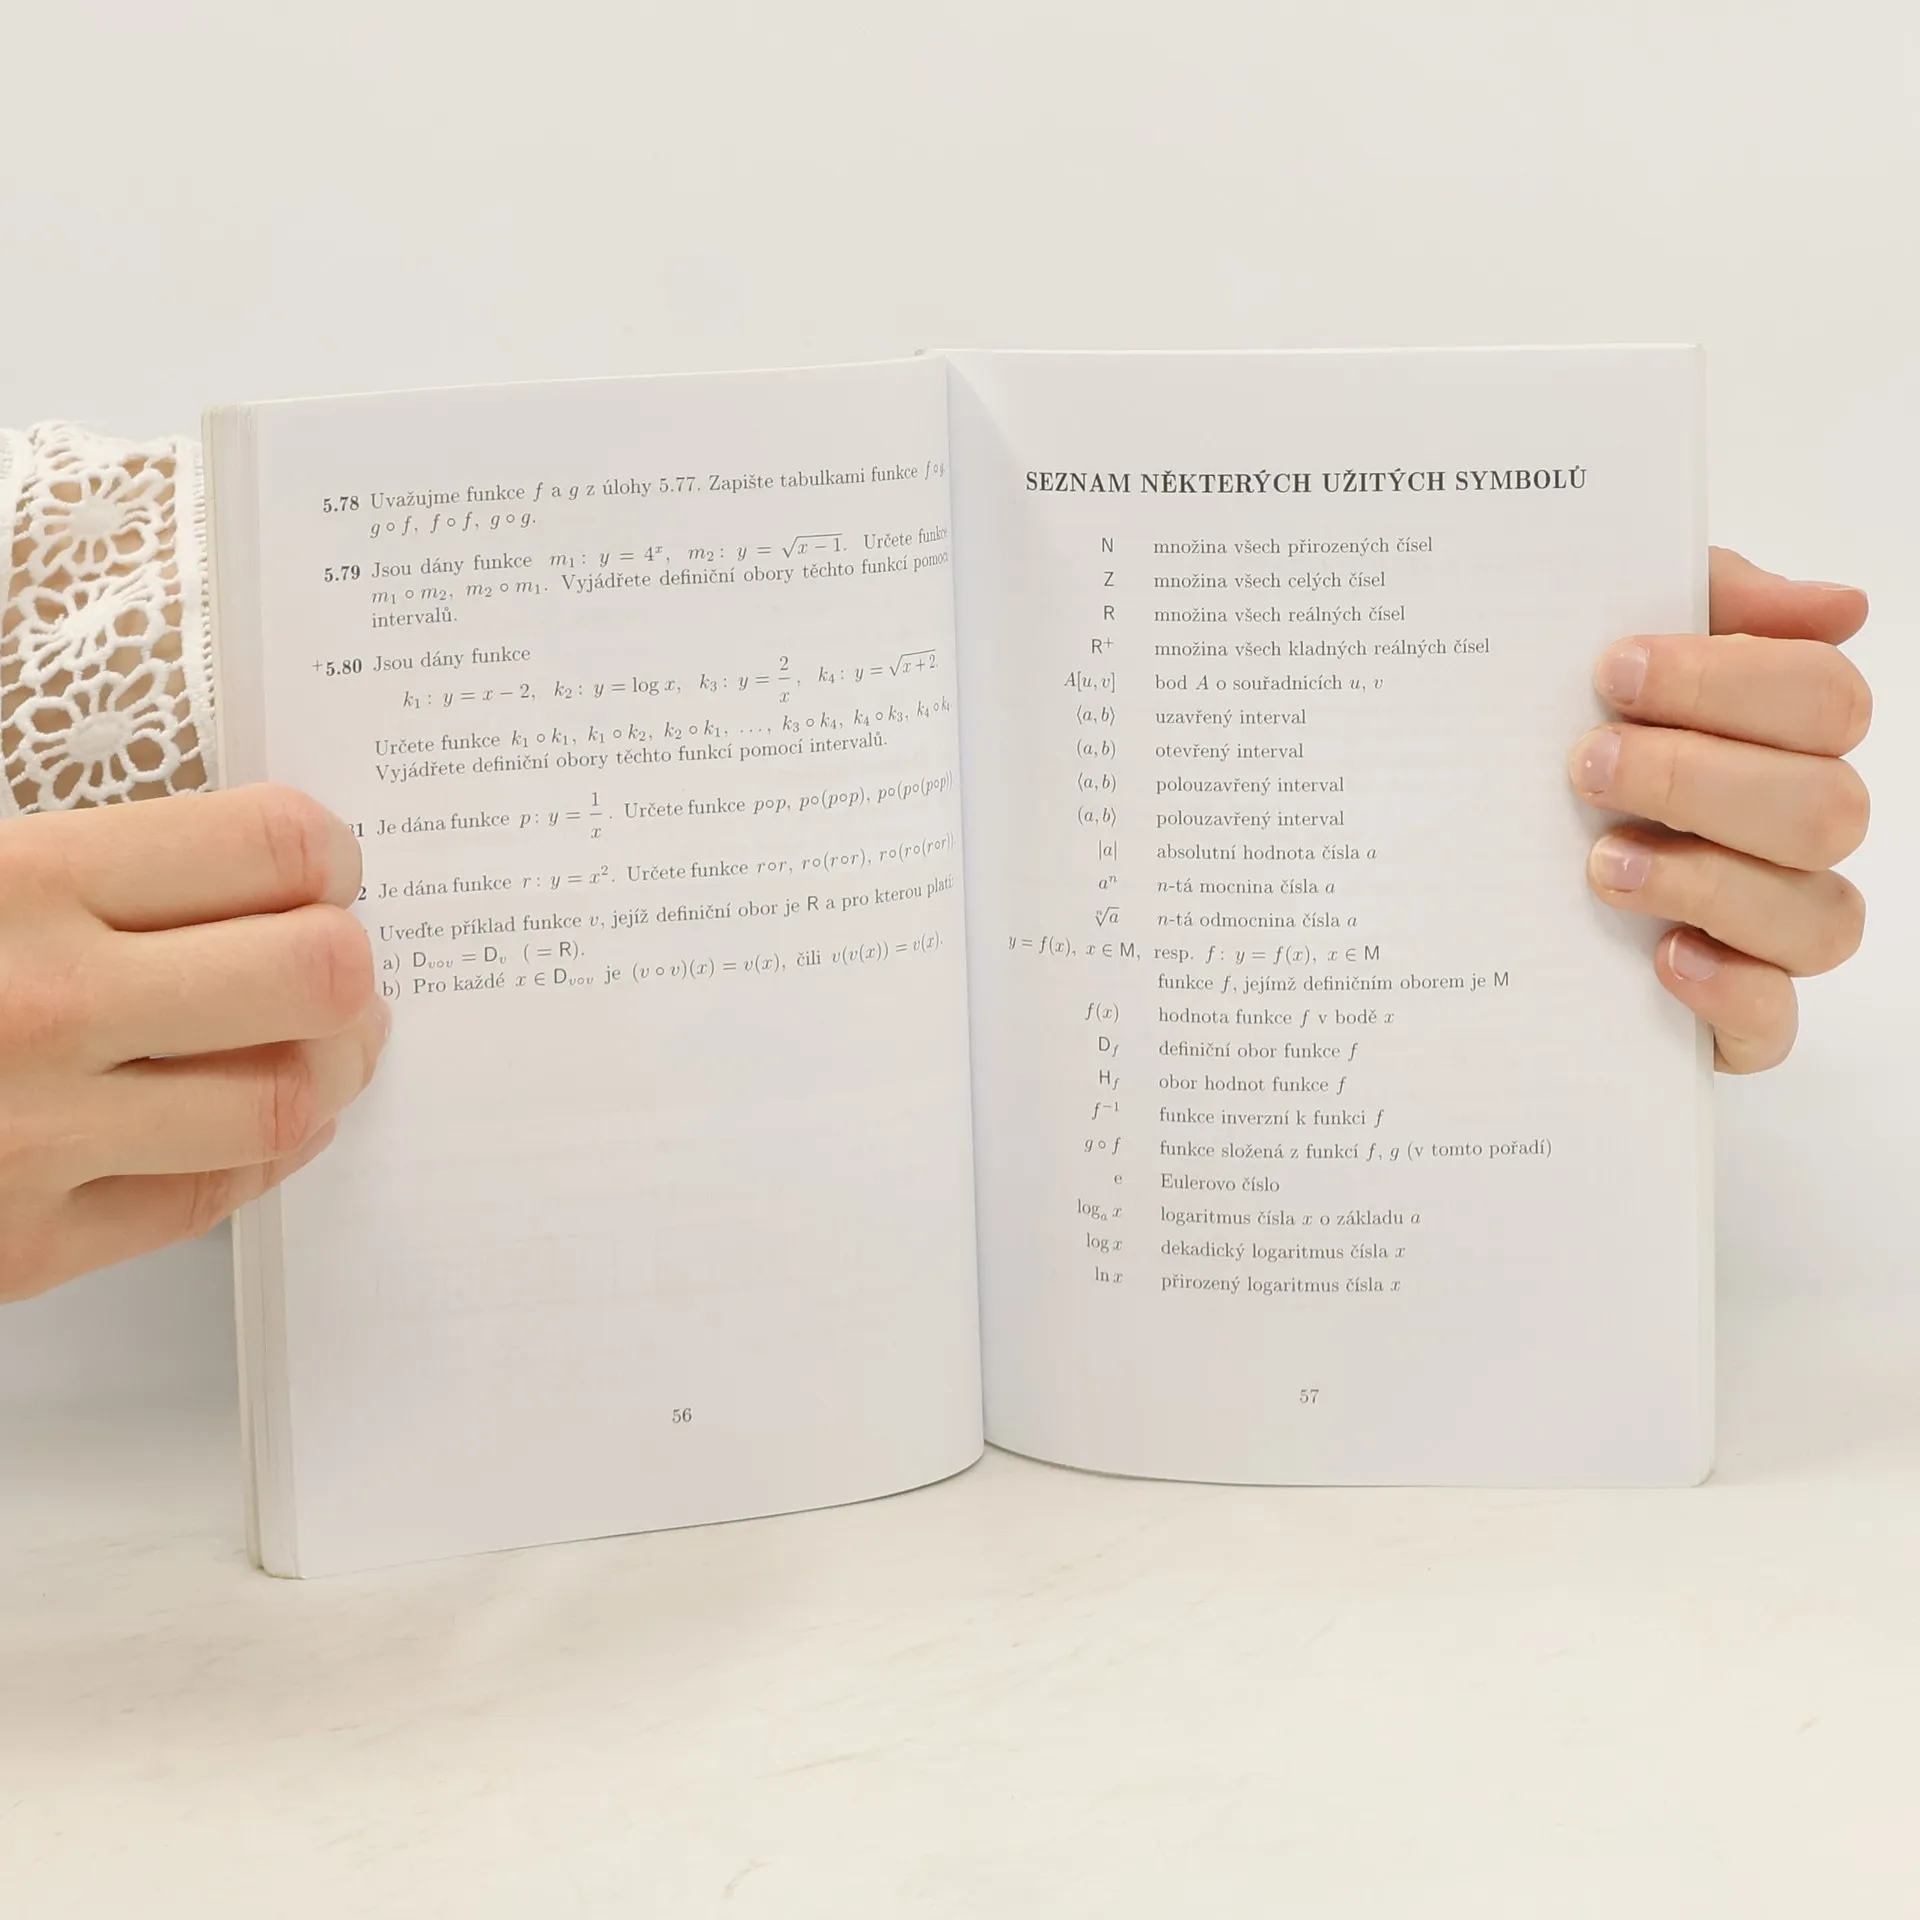 5.78 Uvažujme funkce f a g z úlohy 5.77. Zapište tabulkami funkce f∘g,
g ∘ f, f ∘ f, g ∘ g.
5.79 Jsou dány funkce m₁ : y = 4ˣ, m₂ : y = √(x − 1). Určete funkce
m₁ ∘ m₂, m₂ ∘ m₁. Vyjádřete definiční obory těchto funkcí pomocí
intervalů.
+5.80 Jsou dány funkce
k₁ : y = x − 2, k₂ : y = log x, k₃ : y = 2/x, k₄ : y = √(x + 2)
Určete funkce k₁ ∘ k₁, k₁ ∘ k₂, k₂ ∘ k₁, ..., k₃ ∘ k₄, k₄ ∘ k₃, k₄ ∘ k₄.
Vyjádřete definiční obory těchto funkcí pomocí intervalů.
1 Je dána funkce p : y = 1/x. Určete funkce p∘p, p∘(p∘p), p∘(p∘(p∘p))
2 Je dána funkce r : y = x². Určete funkce r∘r, r∘(r∘r), r∘(r∘(r∘r)).
Uveďte příklad funkce v, jejíž definiční obor je R a pro kterou platí:
a) D_v∘v = D_v ( = R).
b) Pro každé x ∈ D_v∘v je (v ∘ v)(x) = v(x), čili v(v(x)) = v(x).
56
SEZNAM NĚKTERÝCH UŽITÝCH SYMBOLŮ
N množina všech přirozených čísel
Z množina všech celých čísel
R množina všech reálných čísel
R⁺ množina všech kladných reálných čísel
A[u, v] bod A o souřadnicích u, v
⟨a, b⟩ uzavřený interval
(a, b) otevřený interval
⟨a, b) polouzavřený interval
(a, b⟩ polouzavřený interval
|a| absolutní hodnota čísla a
aⁿ n-tá mocnina čísla a
ⁿ√a n-tá odmocnina čísla a
y = f(x), x ∈ M, resp. f : y = f(x), x ∈ M
funkce f, jejímž definičním oborem je M
f(x) hodnota funkce f v bodě x
D_f definiční obor funkce f
H_f obor hodnot funkce f
f⁻¹ funkce inverzní k funkci f
g ∘ f funkce složená z funkcí f, g (v tomto pořadí)
e Eulerovo číslo
logₐ x logaritmus čísla x o základu a
log x dekadický logaritmus čísla x
ln x přirozený logaritmus čísla x
57